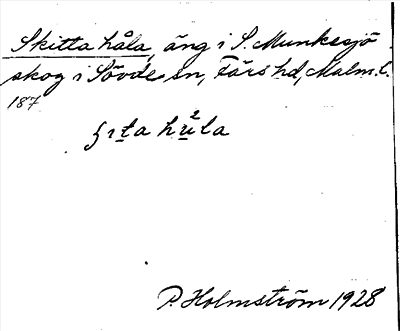 Skitta håla, äng i S. Munkesjö
skog i Sövde sn, Färs hd, Malm. l.
187
ʂıta hu²la
P. Holmström 1928